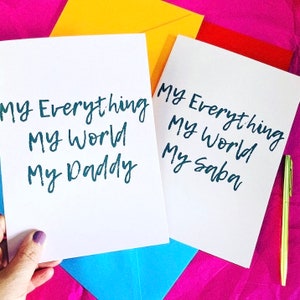 My Everything
My World
My Daddy
My Everything
My World
My Saba